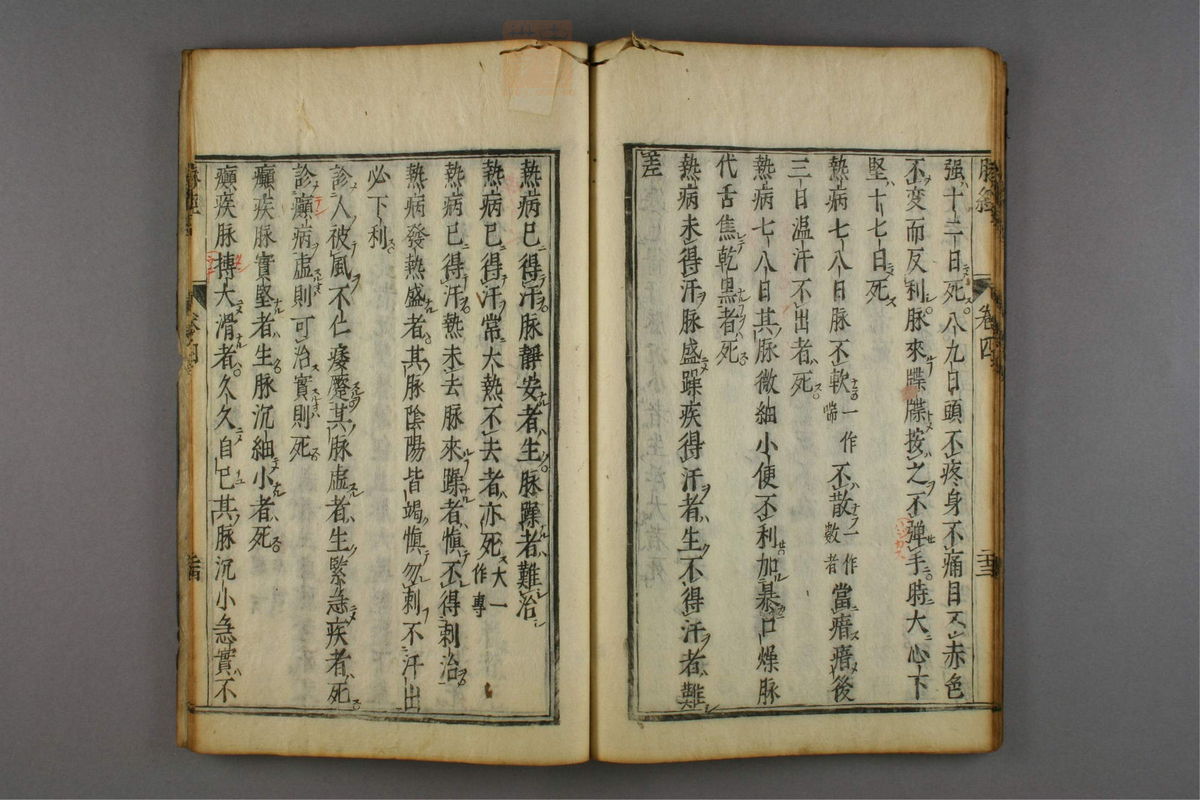 强十二日死八九日頭不疼身不痛目不赤色
不變而反利脉來牒牒按之不彈手時大心下
堅十七日死
熱病七八日脉不軟一作喘不散一作數者當瘖瘖後
三日温汗不出者死
熱病七八日其脉微細小便不利加暴口燥脉
代舌焦乾黒者死
熱病未得汗脉盛躁疾得汗者生不得汗者難
差
熱病已得汗脉靜安者生脉躁者難治
熱病已得汗常大熱不去者亦死大一作專
熱病已得汗熱未去脉來躁者愼不得刺治
熱病發熱盛者其脉陰陽皆竭愼勿刺不汗出
必下利
診人被風不仁痿蹷其脉虚者生緊急疾者死
診癲病虚則可治實則死
癲疾脉實堅者生脉沉細小者死
癲疾脉搏大滑者久久自已其脉沉小急實不
卷四
卷四